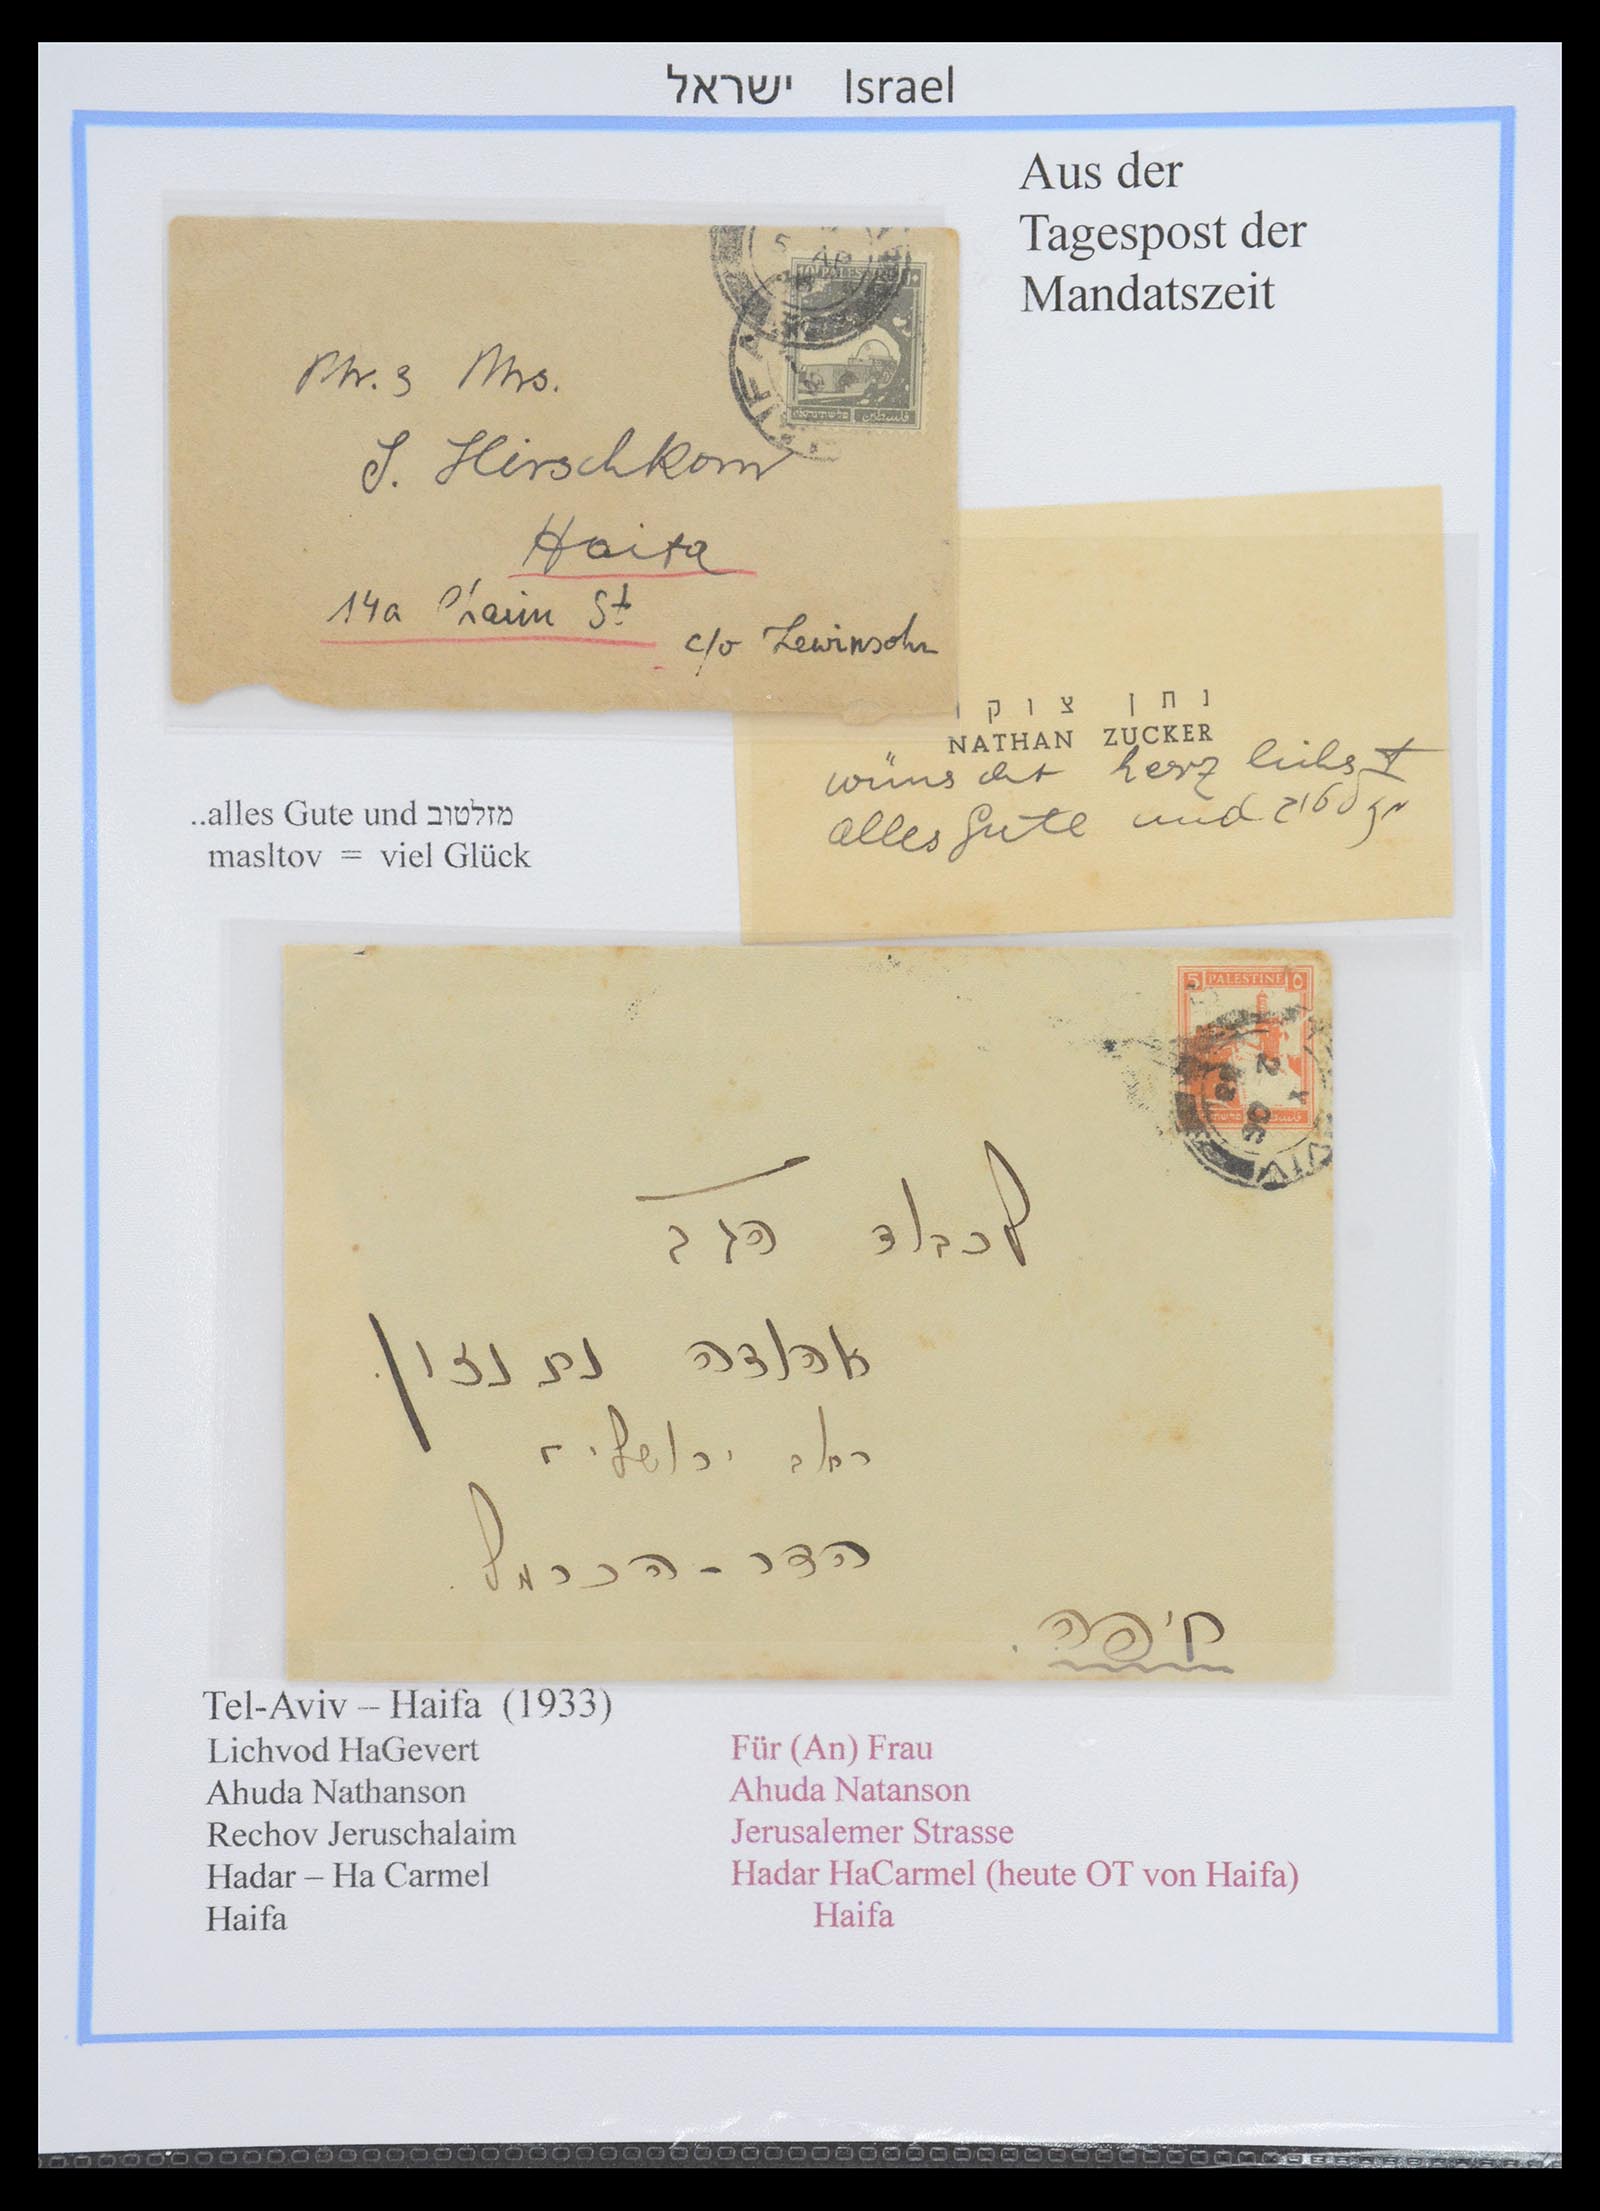 ישראל Israel
Aus der
Tagespost der
Mandatszeit
10 PALESTINE
פלשתינה א״י فلسطين
Mr. & Mrs.
S. Hirschkorn
Haifa
14a Chaim St
c/o Lewinsohn
נתן צוקר
NATHAN ZUCKER
wünscht herzlichst
alles Gute und מזלטוב
..alles Gute und מזלטוב
masltov = viel Glück
5 PALESTINE ٥
2 DE
VIV
לכבוד הגב
אהודה נתנזון
רחוב ירושלים
הדר - הכרמל.
חיפה.
Tel-Aviv – Haifa (1933)
Lichvod HaGevert
Ahuda Nathanson
Rechov Jeruschalaim
Hadar – Ha Carmel
Haifa
Für (An) Frau
Ahuda Natanson
Jerusalemer Strasse
Hadar HaCarmel (heute OT von Haifa)
Haifa